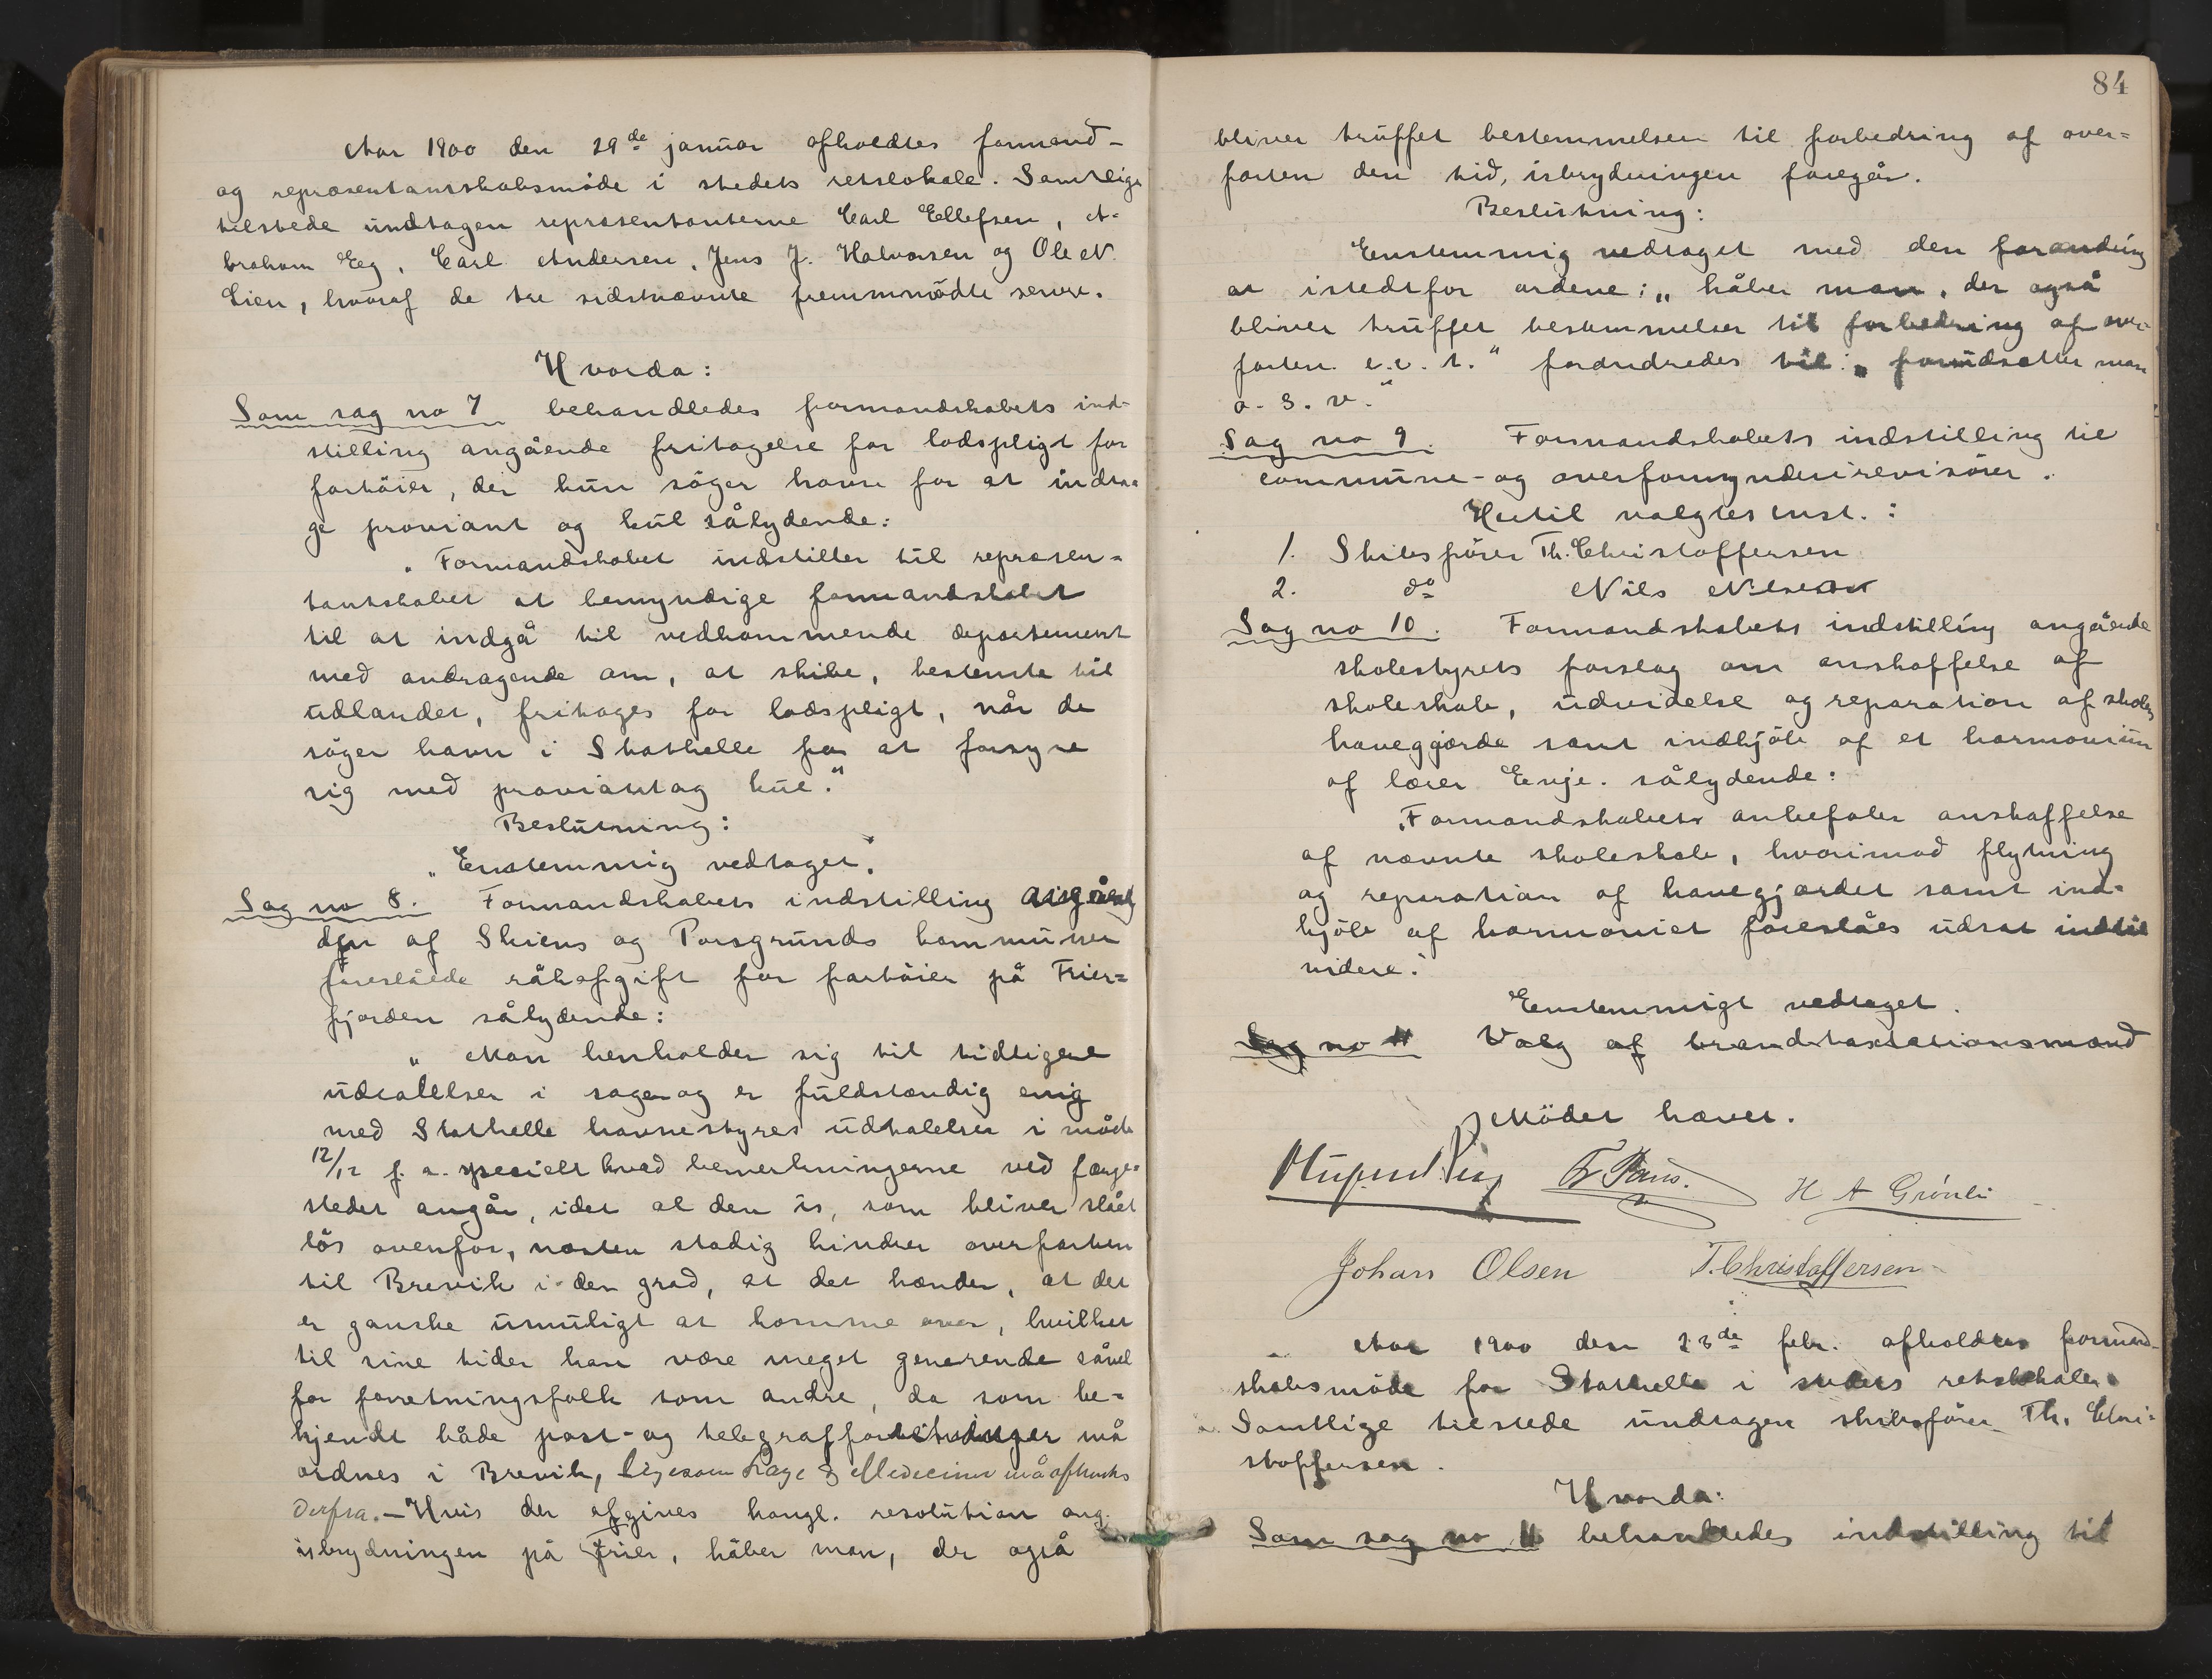 Aar 1900 den 29de januar afholdtes formand-
og repræsentantskabsmöde i stedets retslokale. Samtlige
tilstede undtagen repræsentanterne Carl Ellefsen, A-
braham Eeg, Carl Andersen, Jens J. Halvorsen og Ole N.
Lien, hvoraf de tre sidstnævnte fremmödte senere.
Hvorda:
Som sag no 7 behandledes formandskabets ind-
stilling angående fritagelse for lodspligt for
fartöier, der kun söger havn for at indta-
ge proviant og kul sålydende:
"Formandskabet indstiller til repræsen-
tantskabet at bemyndige formandskabet
til at indgå til vedkommende departement
med andragende om, at skibe, bestemte til
udlandet, fritages for lodspligt, når de
söger havn i Stathelle for at forsyne
sig med proviant og kul."
Beslutning:
"Enstemmig vedtaget."
Sag no 8. Formandskabets indstilling angåen
den af Skiens og Porsgrunds kommuner
foreslåede råkafgift for fartöier på Frier-
fjorden sålydende:
"Man henholder sig til tidligere
udtalelser i sagen og er fuldstændig enig
med Stathelle havnestyres udtalelser i möde
12/12 f. a. specielt hvad bemerkningerne ved færge-
stedet angår, idet al den is, som bliver slået
lös ovenfor, næsten stadig hindrer overfarten
til Brevik i den grad, at det hænder, at det
er ganske umuligt at komme over, hvilket
til sine tider kan være meget generende såvel
for forretningsfolk som andre, da som be-
kjendt både post- og telegrafforretninger må
ordnes i Brevik, ligesom Læge & Medeciner må afhentes
derfra. - Hvis der afgives kongl. resolution ang.
isbrydningen på Frier, håber man, der også
84
bliver truffet bestemmelser til forbedring af over-
farten den tid, isbrydningen foregår.
Beslutning:
Enstemmig vedtaget med den forandring
at istedetfor ordene: "håber man, der også
bliver truffet bestemmelser til forbedring af over-
farten e.c.t." forandredes til: "forudsætter man
o. s. v."
Sag no 9. Formandskabets indstilling til
commune- og overformynderirevisorer.
Hertil valgtes enst.:
1. Skibsförer Th. Christoffersen
2. do Nils Nilsen
Sag no 10. Formandskabets indstilling angående
skolestyrets forslag om anskaffelse af
skoleskab, udvidelse og reparation af skolens
havegjærde samt indkjöb af et harmonium
af lærer Eenje. sålydende:
"Formandskabets anbefaler anskaffelse
af nævnte skoleskab, hvorimod flytning
og reparation af havegjærdet samt ind-
kjöb af harmoniet foreslåes udsat indtil
videre."
Enstemmigt vedtaget.
Sag no 11 Valg af brandtaxtationsmænd
Mödet hævet.
Fr Paus. H A Grönli
Johan Olsen T. Christoffersen
Aar 1900 den 23de febr. afholdtes formand-
skabsmöde for Stathelle i stedets retslokale.
Samtlige tilstede undtagen skibsförer Th. Chri-
stoffersen.
Hvorda:
Som sag no 11 behandledes indstilling til